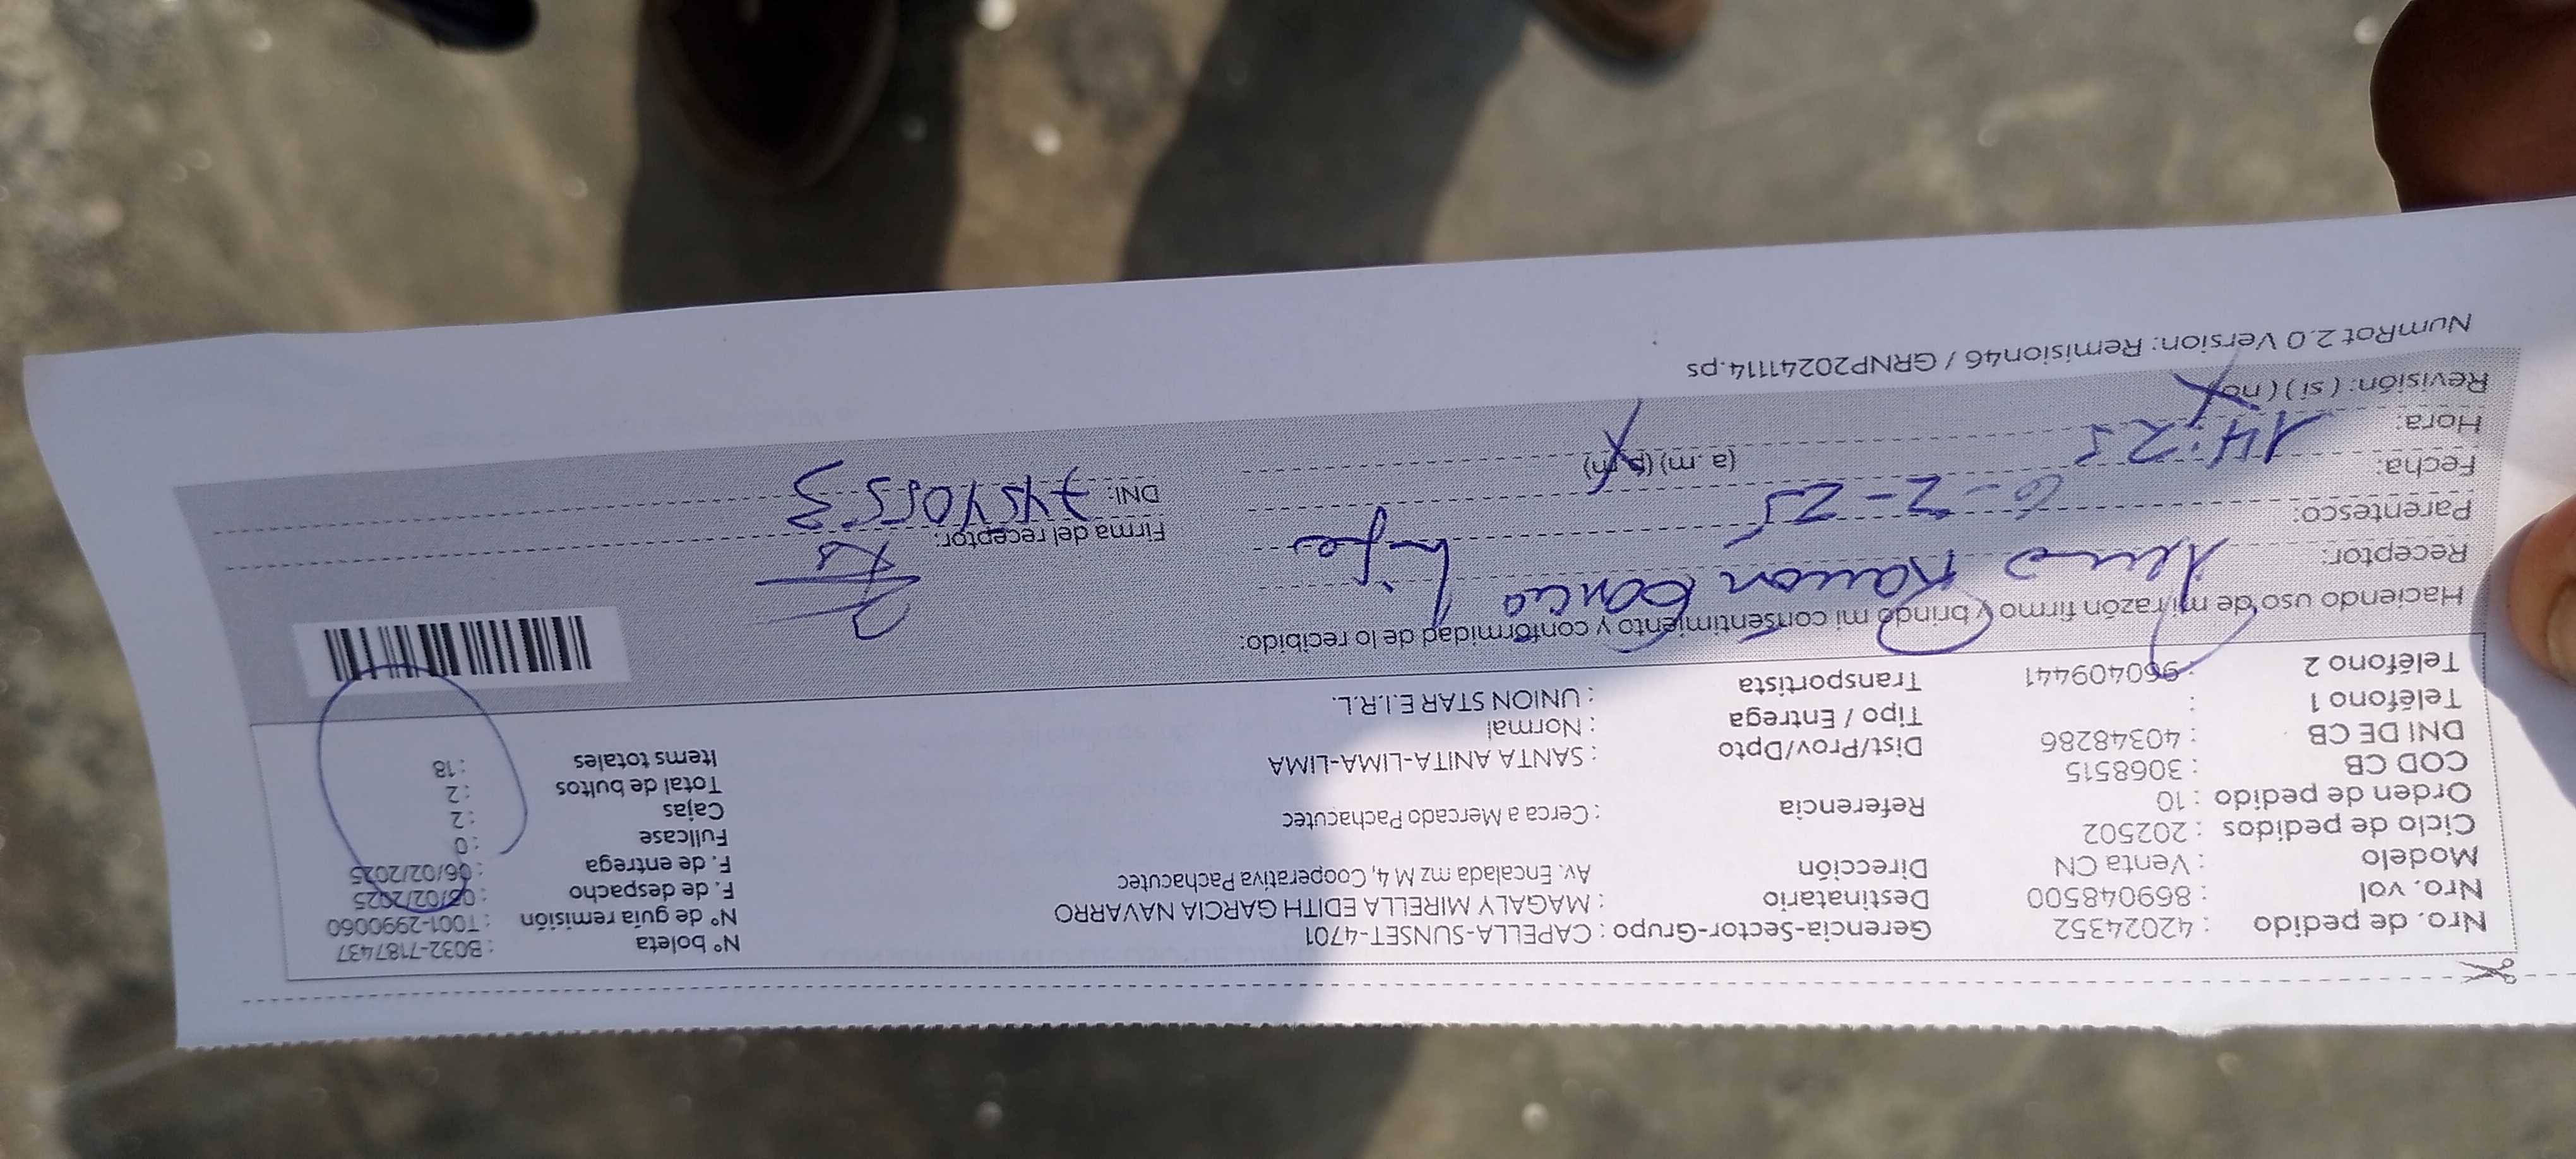 Nro. de pedido : 42024352 Gerencia-Sector-Grupo : CAPELLA-SUNSET-4701 N° boleta : B032-7187437
Nro. vol : 869048500 Destinatario : MAGALY MIRELLA EDITH GARCIA NAVARRO N° de guía remisión : T001-2990060
Modelo : Venta CN Dirección Av. Encalada mz M 4, Cooperativa Pachacutec F. de despacho : 05/02/2025
Ciclo de pedidos : 202502 F. de entrega : 06/02/2025
Orden de pedido : 10 Referencia : Cerca a Mercado Pachacutec Fullcase : 0
COD CB : 3068515 Cajas : 2
DNI DE CB : 40348286 Dist/Prov/Dpto : SANTA ANITA-LIMA-LIMA Total de bultos : 2
Teléfono 1 : Tipo / Entrega : Normal Items totales : 18
Teléfono 2 : 960409441 Transportista : UNION STAR E.I.R.L.
Haciendo uso de mi razón firmo y brindo mi consentimiento y conformidad de lo recibido:
Receptor: Garcia
Parentesco: Firma del receptor:
Fecha: 6-2-25 DNI:
Hora: 14:25 (a.m) (p.m)
Revisión: (si) (no)
NumRot 2.0 Version: Remision46 / GRNP20241114.ps